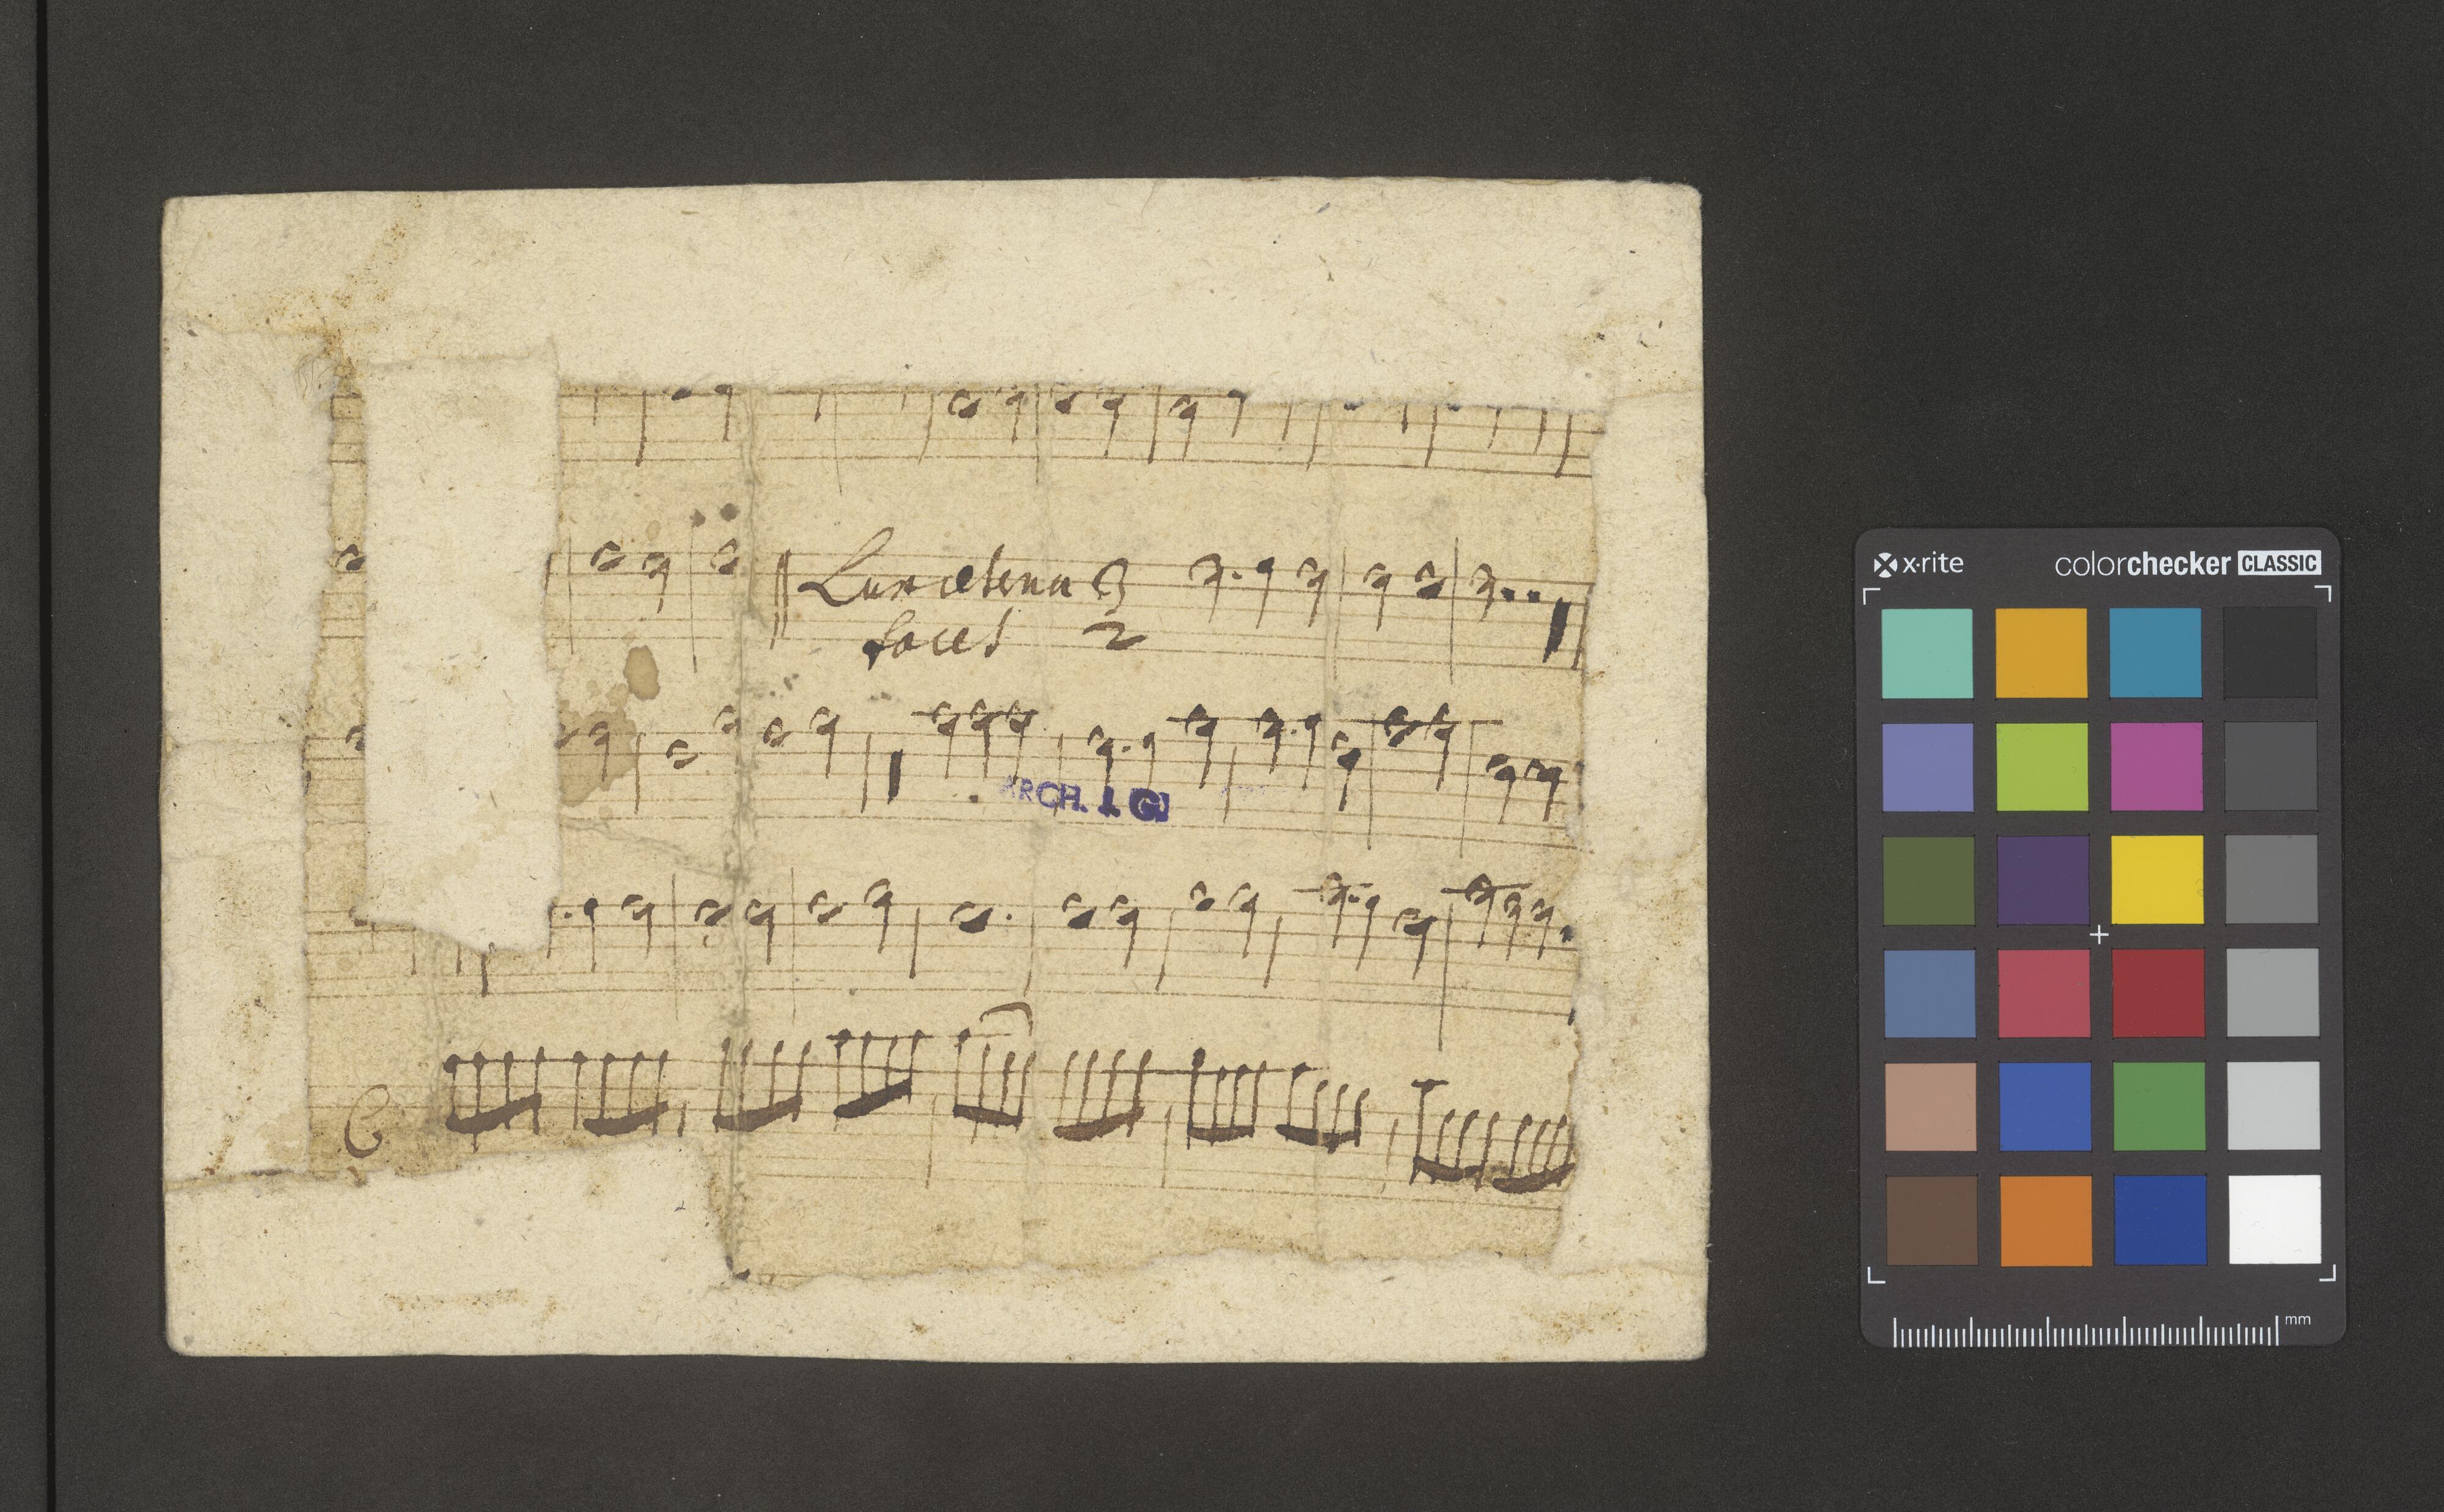 Lux æterna 3
tacet 2
ARCH. I. G.
C
x-rite colorchecker CLASSIC
mm